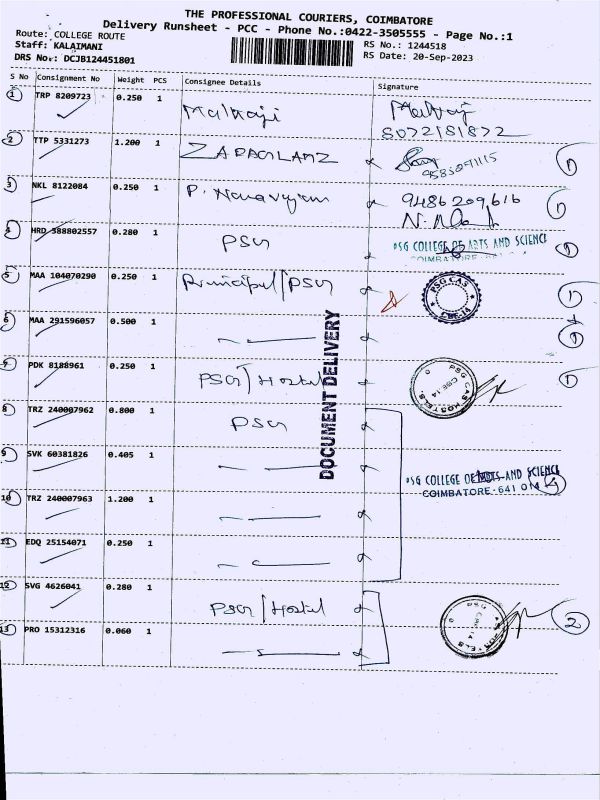 THE PROFESSIONAL COURIERS, COIMBATORE
Delivery Runsheet - PCC - Phone No.:0422-3505555 - Page No.:1
Route: COLLEGE ROUTE
Staff: KALAIMANI RS No.: 1244518
DRS No.: DCJB124451801 RS Date: 20-Sep-2023
S No Consignment No Weight PCS Consignee Details Signature
1 TRP 8209723 0.250 1
8072181872
2 TTP 5331273 1.200 1
1
3 NKL 8122084 0.250 1 9486209616
1
4 HRD 388802557 0.280 1 PSG
PSG COLLEGE OF ARTS AND SCIENCE
COIMBATORE - 641 014
1
5 MAA 104070290 0.250 1 Principal/PSG PSG CAS CBE-14 1
6 MAA 291596057 0.500 1 1
7 PDK 8188961 0.250 1 PSG/Hostel PSG CAS HOSTELS CBE 14 1
DOCUMENT DELIVERY
8 TRZ 240007962 0.800 1 PSG
9 SVK 60381826 0.405 1
PSG COLLEGE OF ARTS AND SCIENCE
COIMBATORE - 641 014 4
10 TRZ 240007963 1.200 1
11 EDQ 25154071 0.250 1
12 SVG 4626041 0.280 1 PSG/Hostel 2
13 PRO 15312316 0.060 1